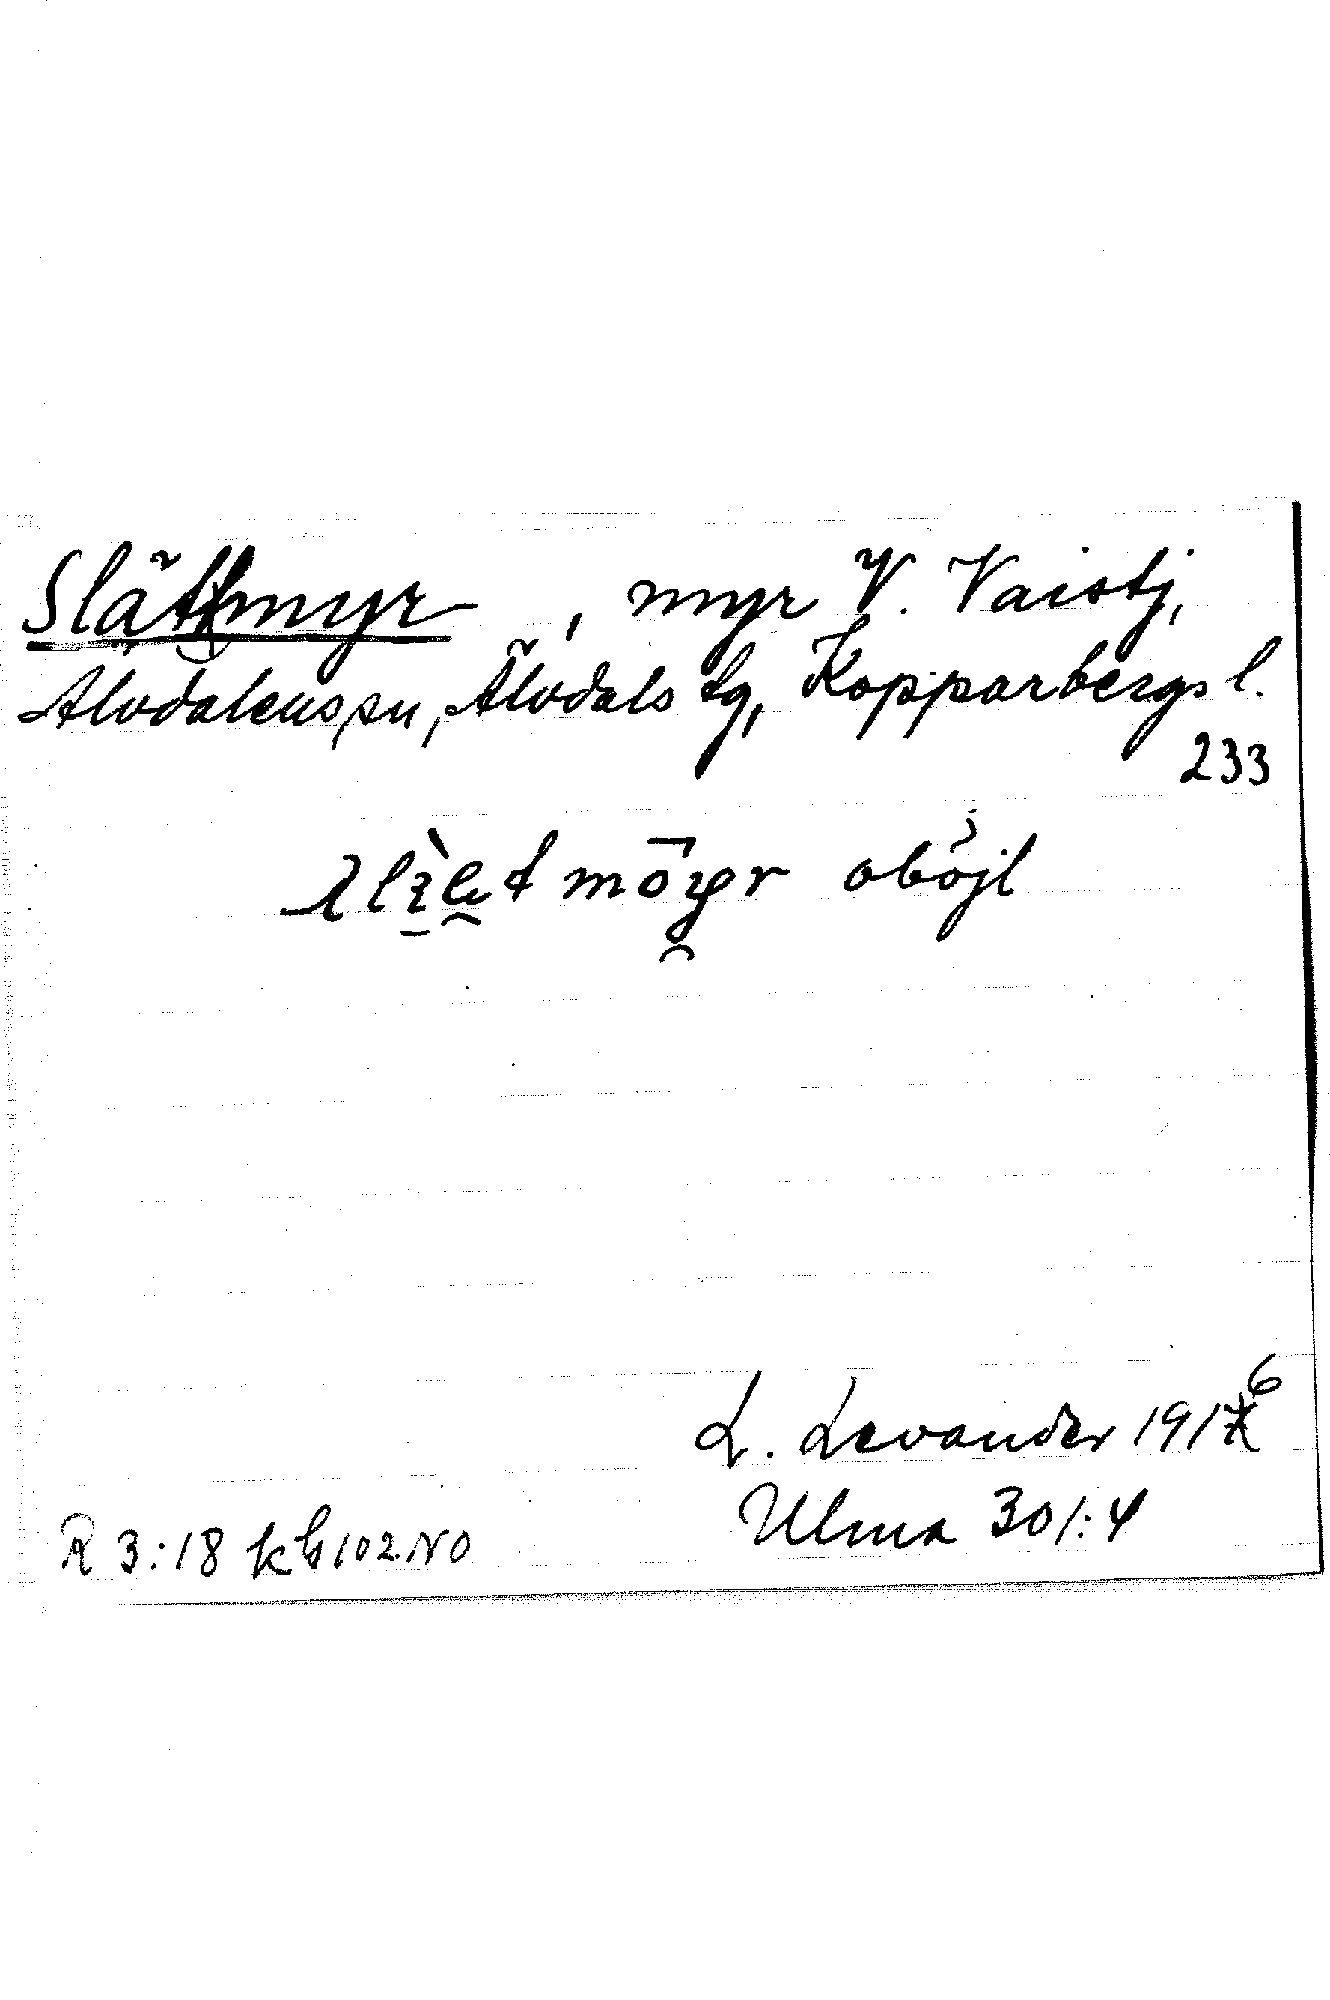 Slättmyr, myr V. Vaistj,
Älvdalens sn, Älvdals tg, Kopparbergs l.
233
oböjl
L. Levander 1916
Ulma 301:4
R 3:18 kb 102 NO